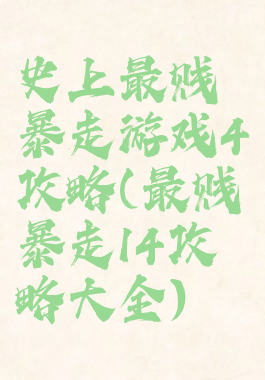 史上最贱
暴走游戏4
攻略(最贱
暴走14攻
略大全)